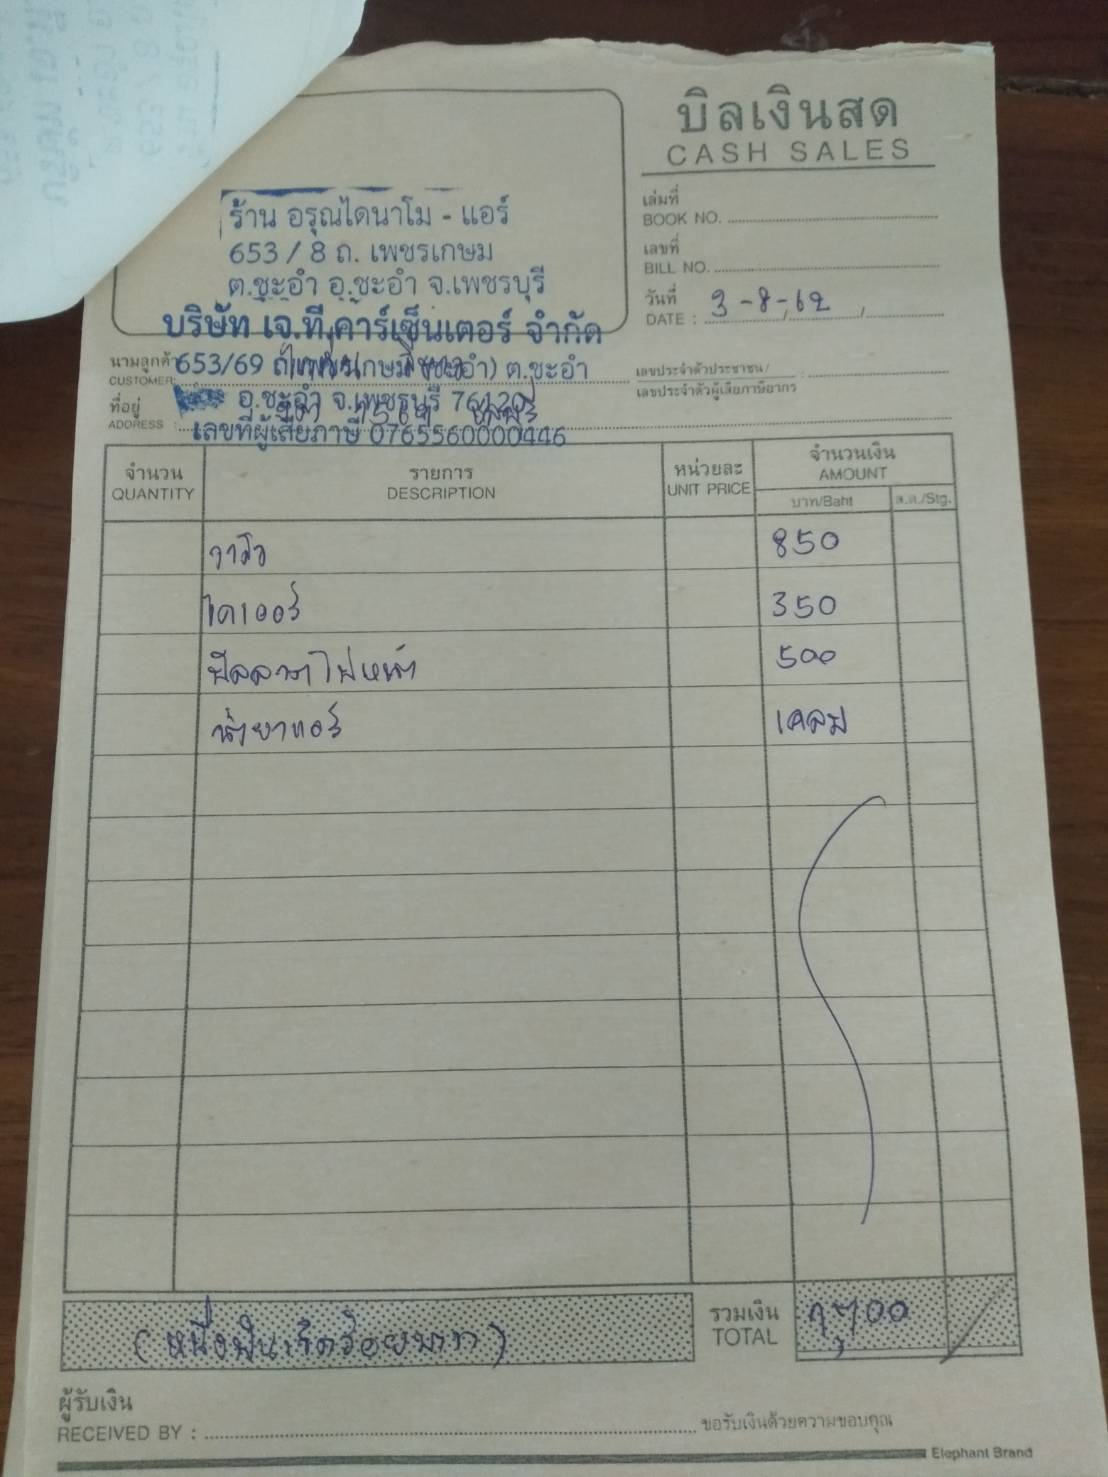 บิลเงินสด
CASH SALES
ร้าน อรุณไดนาโม - แอร์
653 / 8 ถ. เพชรเกษม
ต.ชะอำ อ.ชะอำ จ.เพชรบุรี
เล่มที่
BOOK NO.
เลขที่
BILL NO.
วันที่
DATE : 3 -8 -62
บริษัท เจ.ที.คาร์เซ็นเตอร์ จำกัด
นามลูกค้า
CUSTOMER
653/69 ถ.เพชรเกษม (ชะอำ) ต.ชะอำ
เลขประจำตัวประชาชน/
เลขประจำตัวผู้เสียภาษีอากร
ที่อยู่
ADDRESS :
อ.ชะอำ จ.เพชรบุรี 76120
เลขที่ผู้เสียภาษี 0765560000446
จำนวน รายการ หน่วยละ จำนวนเงิน
QUANTITY DESCRIPTION UNIT PRICE AMOUNT
บาท/Baht ส.ต./Stg.
วาล์ว 850
ไดเออร์ 350
500
น้ำยาแอร์ เคลม
(หนึ่งพันเจ็ดร้อยบาท) รวมเงิน 1,700
TOTAL
ผู้รับเงิน
RECEIVED BY : ขอรับเงินด้วยความขอบคุณ
Elephant Brand